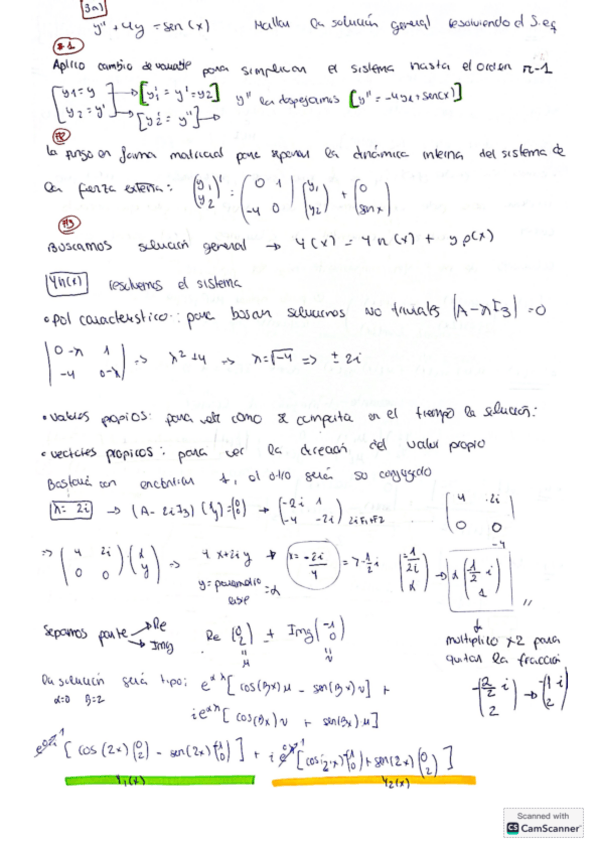 3a)
y'' + 4y = sen(x) Hallar la solución general resolviendo el S.eq
#1
Aplico cambio de variable para simplificar el sistema hasta el orden n-1
[y1 = y → [y1' = y' = y2] y'' la despejamos [y'' = -4y1 + sen(x)]
[y2 = y' → [y2' = y''] →
#2
lo pongo en forma matricial para separar la dinámica interna del sistema de
la fuerza externa: (y1 y2)' = (0 1 -4 0) (y1 y2) + (0 senx)
#3
Buscamos solución general → Y(x) = Yh(x) + yp(x)
Yh(x) resolvemos el sistema
• Pol característico: para buscar soluciones no triviales |A-λI3| = 0
|0-λ 1 -4 0-λ| => λ²+4 → λ = √-4 => ± 2i
• valores propios: para ver como se comporta en el tiempo la solución:
• vectores propios: para ver la dirección del valor propio
Bastará con encontrar 1, el otro será su conjugado
λ = 2i → (A - 2iI3) (x y) = (0 0) → (-2i 1 -4 -2i) 2iF1+F2 (4 2i 0 0)
=> (4 2i 0 0) (x y) => 4x+2iy → x = -2i/4 => -1/2 i
y = parametro libre = α
Separamos parte → Re → Img Re (0 2) + Img (-1 0)
u v
multiplico x2 para quitar la fracción
-(2/2 i 2) → (-1i 2)
La solución será tipo: e^αx [cos(βx)u - sen(βx)v] +
α=0 β=2 ie^αx [cos(βx)v + sen(βx)u]
e^0x [cos(2x)(0 2) - sen(2x)(-1 0)] + i e^0x [cos(2x)(-1 0) + sen(2x)(0 2)]
Y1(x) Y2(x)
Scanned with
CS CamScanner